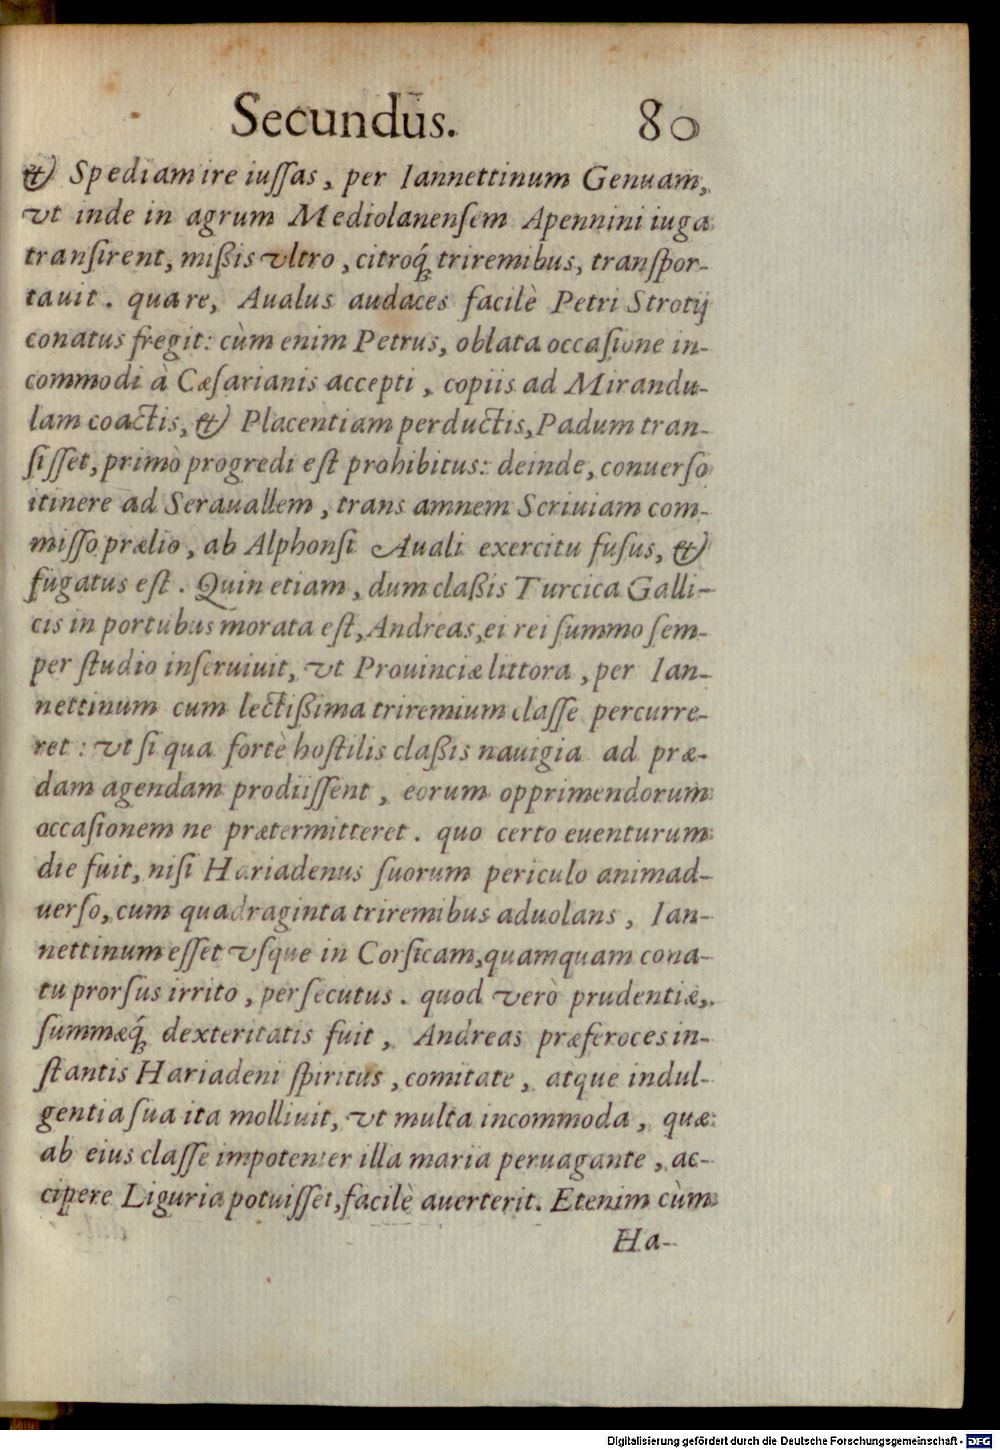 Secundus. 80
& Spediam ire iuſſas, per Iannettinum Genuam,
vt inde in agrum Mediolanenſem Apennini iuga
tranſirent, mißis vltro, citroq́; triremibus, tranſpor-
tauit. quare, Aualus audaces facilè Petri Strotij
conatus fregit: cùm enim Petrus, oblata occaſione in-
commodi à Cæſarianis accepti, copiis ad Mirandu-
lam coactis, & Placentiam perductis, Padum tran-
ſiſſet, primò progredi eſt prohibitus: deinde, conuerſo
itinere ad Serauallem, trans amnem Scriuiam com-
miſſo prælio, ab Alphonſi Auali exercitu fuſus, &
fugatus eſt. Quin etiam, dum claßis Turcica Galli-
cis in portubus morata eſt, Andreas, ei rei ſummo ſem-
per ſtudio inſeruiuit, vt Prouinciæ littora, per Ian-
nettinum cum lectißima triremium claſſe percurre-
ret: vt ſi qua fortè hoſtilis claßis nauigia ad præ-
dam agendam prodiiſſent, eorum opprimendorum
occaſionem ne prætermitteret. quo certo euenturum
die fuit, niſi Hariadenus ſuorum periculo animad-
uerſo, cum quadraginta triremibus aduolans, Ian-
nettinum eſſet vſque in Corſicam, quamquam cona-
tu prorſus irrito, perſecutus. quod verò prudentiæ,
ſummæq́; dexteritatis fuit, Andreas præferoces in-
ſtantis Hariadeni ſpiritus, comitate, atque indul-
gentia ſua ita molliuit, vt multa incommoda, quæ
ab eius claſſe impotenter illa maria peruagante, ac-
cipere Liguria potuiſſet, facilè auerterit. Etenim cùm
Ha-
Digitalisierung gefördert durch die Deutsche Forschungsgemeinschaft - DFG